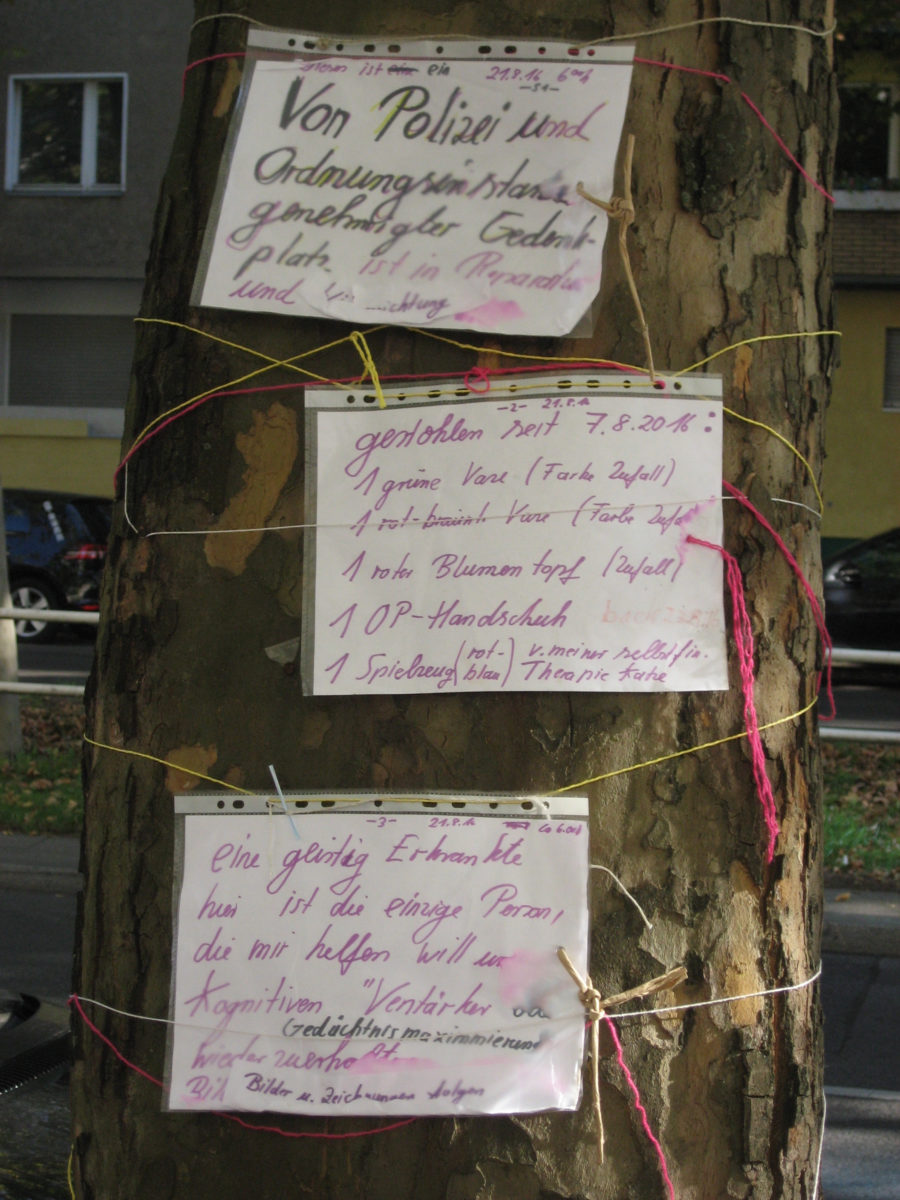 ist ein 21.8.16 6 00h
-S1-
Von Polizei und
Ordnungsinstanz
genehmigter Gedenk-
platz. ist in Reparatur
und
-2- 21.8.16
gestohlen seit 7.8.2016:
1 grüne Vase (Farbe Zufall)
1 rot-braune Vase (Farbe Zufall
1 roter Blumentopf (Zufall)
1 OP-Handschuh
1 Spielzeug (rot-blau) v. meiner selbstfin.
Therapie Katze
-3- 21.8.16 6.00h
eine geistig Erkrankte
hier ist die einzige Person,
die mir helfen will
Kognitiven "Verstärker
Gedächtnismaximmierung
wieder zuerho
Bilder u. Zeichnungen folgen